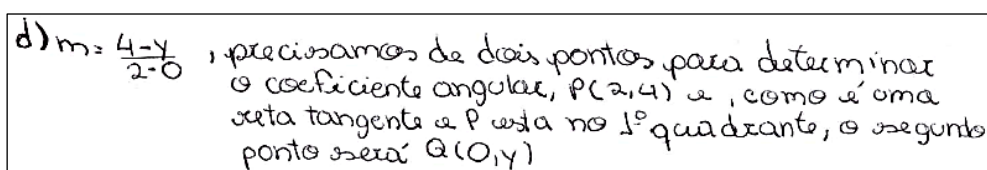 d) m = 4-y/2-0 , precisamos de dois pontos para determinar
o coeficiente angular, P(2,4) e , como é uma
reta tangente e P esta no 1º quadrante, o segundo
ponto será Q(0,y)